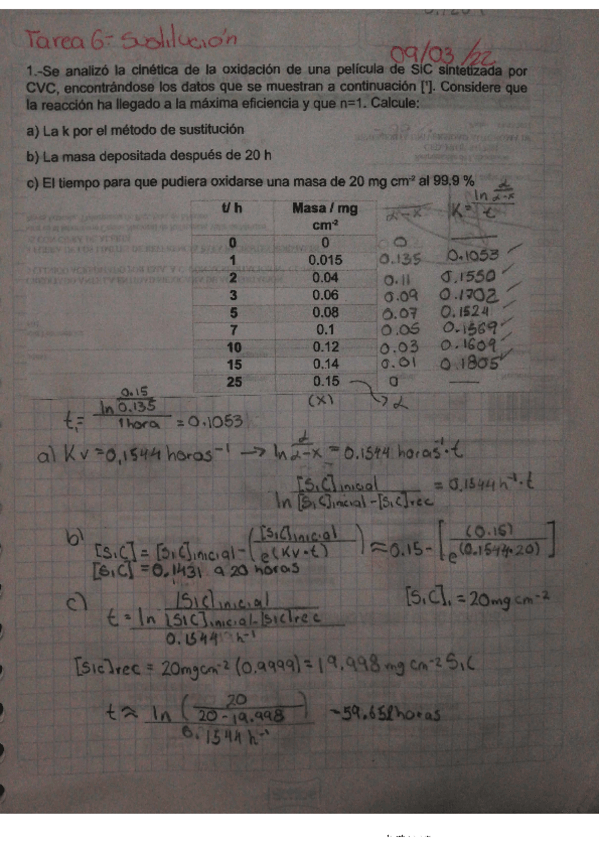 Tarea 6- Sustitución
09/03/22
1.-Se analizó la cinética de la oxidación de una película de SiC sintetizada por
CVC, encontrándose los datos que se muestran a continuación [']. Considere que
la reacción ha llegado a la máxima eficiencia y que n=1. Calcule:
a) La k por el método de sustitución
b) La masa depositada después de 20 h
c) El tiempo para que pudiera oxidarse una masa de 20 mg cm⁻² al 99.9 %
t/ h Masa / mg cm⁻² α-x K= ln α/α-x / t
0 0 0 —
1 0.015 0.135 0.1053 ✓
2 0.04 0.11 0.1550 ✓
3 0.06 0.09 0.1702 ✓
5 0.08 0.07 0.1524 ✓
7 0.1 0.05 0.1569 ✓
10 0.12 0.03 0.1609 ✓
15 0.14 0.01 0.1805 ✓
25 0.15 0 —
(x) → α
t₁= ln 0.15/0.135 / 1 hora = 0.1053
a) Kv = 0,1544 horas⁻¹ → ln α/α-x = 0.1544 horas⁻¹·t
[SiC]inicial / ln [SiC]inicial-[SiC]rec = 0.1544 h⁻¹·t
b) [SiC] = [SiC]inicial - ([SiC]inicial / e(Kv·t)) ≈ 0.15 - [(0.15) / e(0.1544·20)]
[SiC] = 0.1431 a 20 horas
c) t = ln [SiC]inicial / [SiC]inicial-[SiC]rec / 0.1544 h⁻¹ [SiC]ᵢ = 20mg cm⁻²
[SiC]rec = 20mgcm⁻² (0.9999) = 19.998 mg cm⁻² SiC
t ≈ ln (20 / 20-19.998) / 0.1544 h⁻¹ ~59.652horas